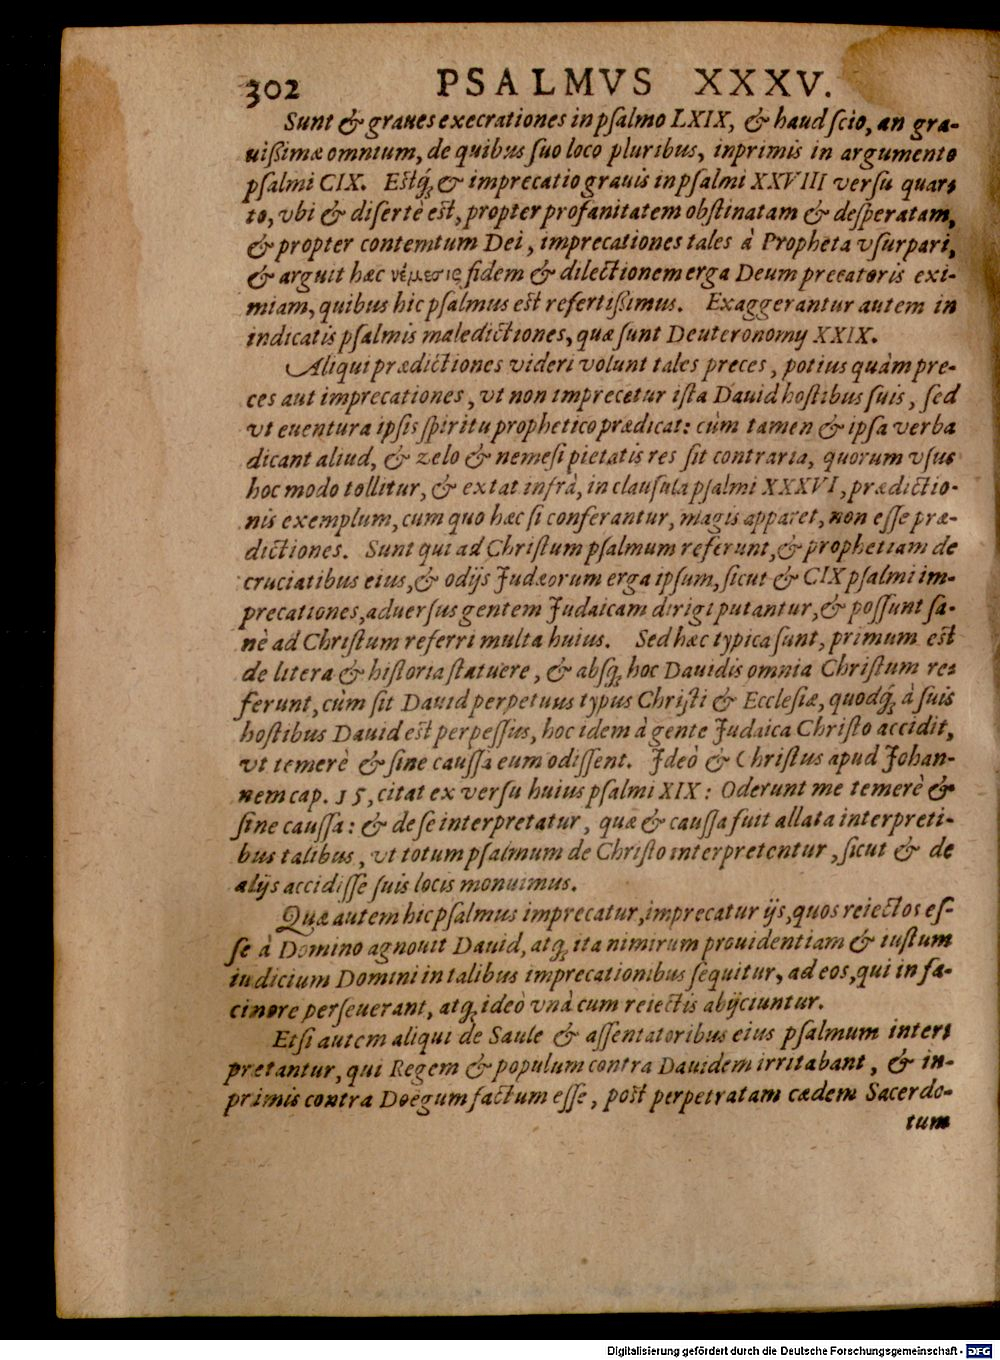 302 PSALMVS XXXV.
Sunt & graues execrationes in psalmo LXIX, & haud scio, an gra-
uißimæ omnium, de quibus suo loco pluribus, inprimis in argumento
psalmi CIX. Estq́;, & imprecatio grauis in psalmi XXVIII versu quar-
to, vbi & disertè est, propter profanitatem obstinatam & desperatam,
& propter contemtum Dei, imprecationes tales à Propheta vsurpari,
& arguit hæc νέμεσις fidem & dilectionem erga Deum precatoris exi-
miam, quibus hic psalmus est refertißimus. Exaggerantur autem in
indicatis psalmis maledictiones, quæ sunt Deuteronomij XXIX.
Aliqui prædictiones videri volunt tales preces, potius quàm pre-
ces aut imprecationes, vt non imprecetur ista Dauid hostibus suis, sed
vt euentura ipsis spiritu prophetico prædicat: cùm tamen & ipsa verba
dicant aliud, & zelo & nemesi pietatis res sit contraria, quorum vsus
hoc modo tollitur, & extat infrà, in clausula psalmi XXXVI, prædictio-
nis exemplum, cum quo hæc si conferantur, magis apparet, non esse præ-
dictiones. Sunt qui ad Christum psalmum referunt, & prophetiam de
cruciatibus eius, & odijs Judæorum erga ipsum, sicut & CIX psalmi im-
precationes, aduersus gentem Judaicam dirigi putantur, & possunt sa-
nè ad Christum referri multa huius. Sed hæc typica sunt, primum est
de litera & historia statuere, & absq; hoc Dauidis omnia Christum re-
ferunt, cùm sit Dauid perpetuus typus Christi & Ecclesiæ, quodq́; à suis
hostibus Dauid est perpessus, hoc idem à gente Judaica Christo accidit,
vt temerè & sine caussa eum odissent. Ideò & Christus apud Johan-
nem cap. 15, citat ex versu huius psalmi XIX: Oderunt me temerè &
sine caussa: & de se interpretatur, quæ & caussa fuit allata interpreti-
bus talibus, vt totum psalmum de Christo interpretentur, sicut & de
alijs accidisse suis locis monuimus.
Quæ autem hic psalmus imprecatur, imprecatur ijs, quos reiectos es-
se à Domino agnouit Dauid, atq; ita nimirum prouidentiam & iustum
iudicium Domini in talibus imprecationibus sequitur, ad eos, qui in fa-
cinore perseuerant, atq; ideò vnà cum reiectis abijciuntur.
Etsi autem aliqui de Saule & assentatoribus eius psalmum inter-
pretantur, qui Regem & populum contra Dauidem irritabant, & in-
primis contra Doëgum factum esse, post perpetratam cædem Sacerdo-
tum
Digitalisierung gefördert durch die Deutsche Forschungsgemeinschaft - DFG